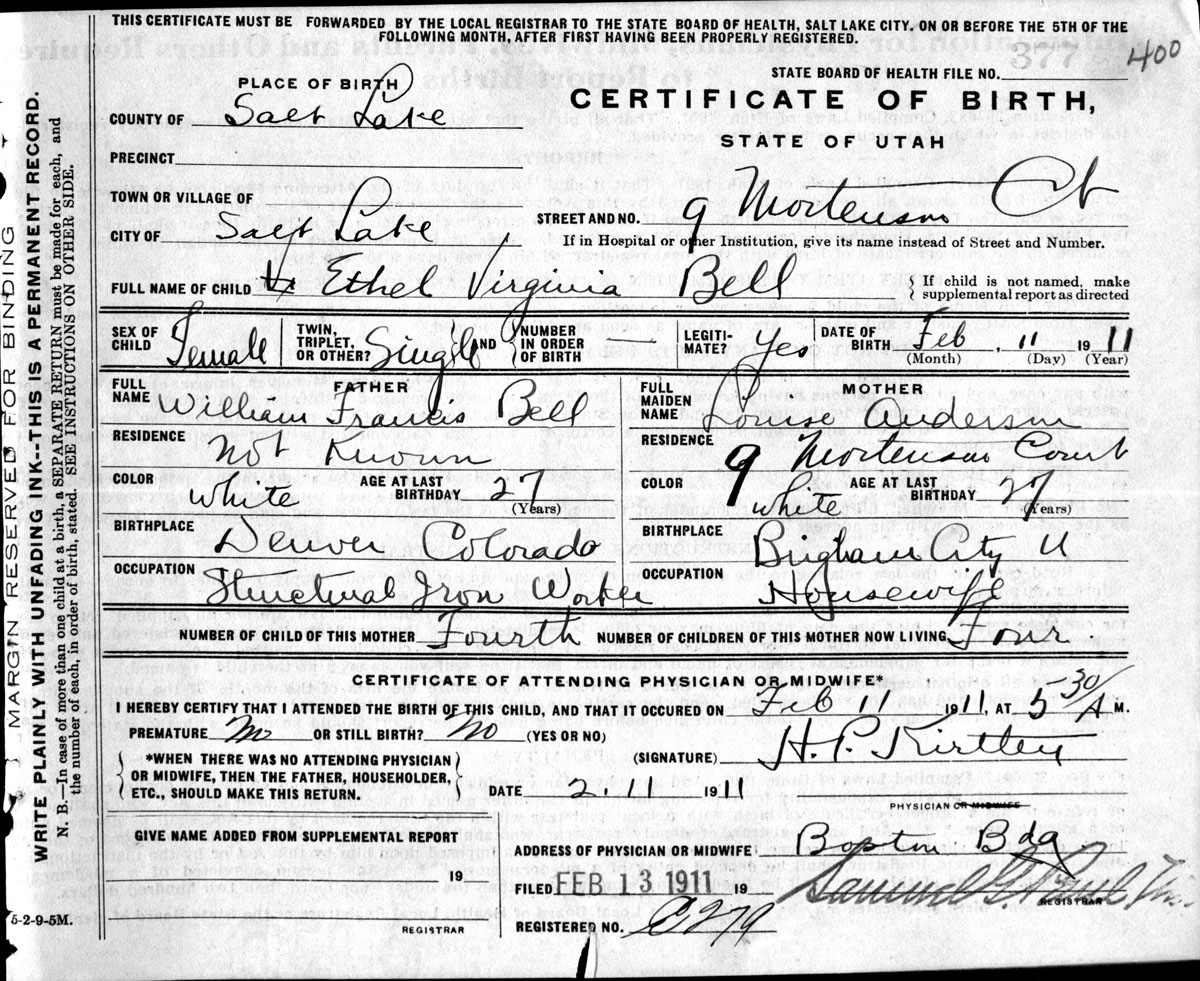 THIS CERTIFICATE MUST BE FORWARDED BY THE LOCAL REGISTRAR TO THE STATE BOARD OF HEALTH, SALT LAKE CITY, ON OR BEFORE THE 5TH OF THE
FOLLOWING MONTH, AFTER FIRST HAVING BEEN PROPERLY REGISTERED.
377 400
STATE BOARD OF HEALTH FILE NO.
PLACE OF BIRTH
CERTIFICATE OF BIRTH,
STATE OF UTAH
COUNTY OF Salt Lake
PRECINCT
TOWN OR VILLAGE OF
CITY OF Salt Lake
STREET AND NO. 9 Mortenson Ct
If in Hospital or other Institution, give its name instead of Street and Number.
FULL NAME OF CHILD Ethel Virginia Bell
{ If child is not named, make
supplemental report as directed
SEX OF CHILD Female
TWIN, TRIPLET, OR OTHER? Single
AND { NUMBER IN ORDER OF BIRTH
LEGITI-MATE? Yes
DATE OF BIRTH Feb 11 1911
(Month) (Day) (Year)
FATHER
FULL NAME William Francis Bell
RESIDENCE Not Known
COLOR White AGE AT LAST BIRTHDAY 27 (Years)
BIRTHPLACE Denver Colorado
OCCUPATION Structural Iron Worker
MOTHER
FULL MAIDEN NAME Louise Anderson
RESIDENCE 9 Mortenson Court
COLOR White AGE AT LAST BIRTHDAY 27 (Years)
BIRTHPLACE Brigham City U
OCCUPATION Housewife
NUMBER OF CHILD OF THIS MOTHER Fourth NUMBER OF CHILDREN OF THIS MOTHER NOW LIVING Four
CERTIFICATE OF ATTENDING PHYSICIAN OR MIDWIFE*
I HEREBY CERTIFY THAT I ATTENDED THE BIRTH OF THIS CHILD, AND THAT IT OCCURRED ON Feb 11 1911, AT 5 30/A M.
PREMATURE No OR STILL BIRTH? No (YES OR NO)
(SIGNATURE) H. P. Kirtley
{ *WHEN THERE WAS NO ATTENDING PHYSICIAN
OR MIDWIFE, THEN THE FATHER, HOUSEHOLDER,
ETC., SHOULD MAKE THIS RETURN. }
DATE 2.11 1911
PHYSICIAN OR MIDWIFE
GIVE NAME ADDED FROM SUPPLEMENTAL REPORT
19
REGISTRAR
ADDRESS OF PHYSICIAN OR MIDWIFE Boston Bdg
FILED FEB 13 1911 19
Samuel G. Paul
REGISTRAR
REGISTERED NO. C279
5-2-9-5M.
MARGIN RESERVED FOR BINDING
WRITE PLAINLY WITH UNFADING INK--THIS IS A PERMANENT RECORD.
N. B.—In case of more than one child at a birth, a SEPARATE RETURN must be made for each, and
the number of each, in order of birth, stated. SEE INSTRUCTIONS ON OTHER SIDE.